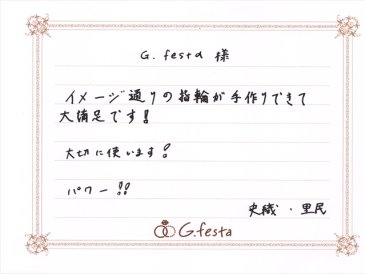 G. festa 様
イメージ通りの指輪が手作りできて
大満足です!
大切に使います!
パワー!!
史織・里民
G.festa